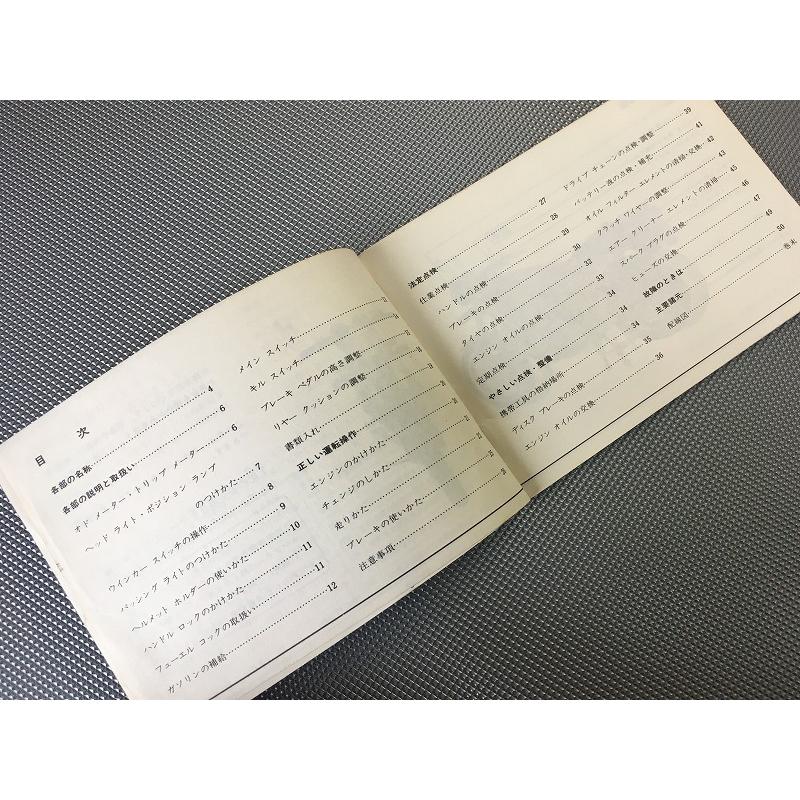 目 次
各部の名称 4
各部の説明と取扱い 6
オド メーター・トリップ メーター 6
ヘッド ライト・ポジション ランプ
のつけかた 7
ウインカー スイッチの操作 8
パッシング ライトのつけかた 9
ヘルメット ホルダーの使いかた 10
ハンドル ロックのかけかた 11
フューエル コックの取扱い 11
ガソリンの補給 12
メイン スイッチ
キル スイッチ
ブレーキ ペダルの高さ調整
リヤー クッションの調整
書類入れ
正しい運転操作
エンジンのかけかた
チェンジのしかた
走りかた
ブレーキの使いかた
注意事項
法定点検 27
仕業点検 28
ハンドルの点検 29
ブレーキの点検 30
タイヤの点検 32
エンジン オイルの点検 33
定期点検 34
やさしい点検、整備 34
携帯工具の格納場所 34
ディスク ブレーキの点検 35
エンジン オイルの交換 36
ドライブ チェーンの点検・調整 39
バッテリー液の点検・補充 41
オイル フィルター エレメントの清掃・交換 42
クラッチ ワイヤーの調整 43
エアー クリーナー エレメントの清掃 45
スパーク プラグの点検 46
ヒューズの交換 47
故障のときは 49
主要諸元 50
配線図 巻末